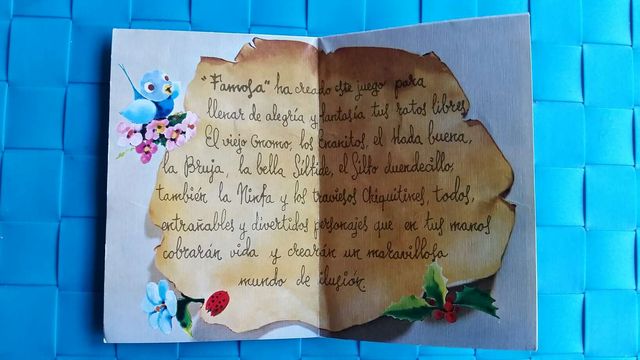 "Famosa" ha creado este juego para
llenar de alegría y fantasía tus ratos libres.
El viejo Gnomo, los Enanitos, el Hada buena,
la Bruja, la bella Sílfide, el Silfo duendecillo,
también la Ninfa y los traviesos Chiquitines, todos,
entrañables y divertidos personajes que en tus manos
cobrarán vida y crearán un maravilloso
mundo de ilusión.